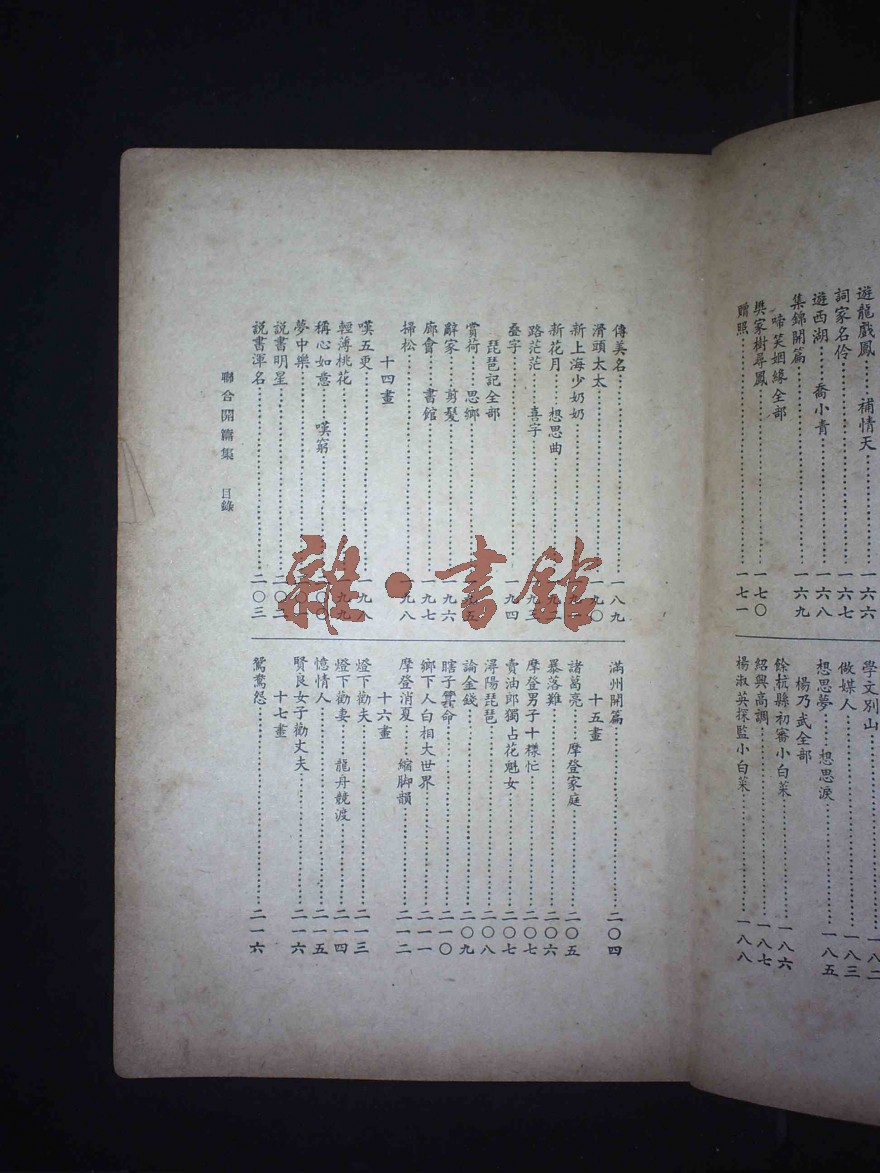 遊龍戲鳳 補情天………一六六
詞家名伶………一六七
遊西湖 喬小青………一六八
集錦開篇………一六九
啼笑姻緣全部
樊家樹尋鳳………一七〇
贈照………一七一
學文別山………一八二
做媒人………一八三
想思夢 想思淚………一八五
楊乃武全部
餘杭縣初審小白菜………一八六
紹興高調………一八七
楊淑英探監小白菜………一八八
傳美名………一八九
滑頭太太………一九〇
新上海少奶奶………
新花月 想思曲………一九二
路茫茫 喜字………一九三
叠字………一九四
琵琶記全部
賞荷 思鄉………一九五
辭家 剪髮………一九六
廊會 書館………一九七
掃松………一九八
十四畫
嘆五更………一九八
輕薄桃花………一九九
稱心如意 嘆窮………
夢中樂………
説書明星………二〇二
説書渾名………二〇三
滿州開篇………二〇四
十五畫
諸葛亮 摩登家庭………二〇五
暴落難………二〇六
摩登男子十樣忙………二〇七
賣油郎獨占花魁女………二〇七
潯陽琵琶………二〇八
論金錢………二〇九
瞎子算命………二一〇
鄉下人白相大世界………二一一
摩登消夏 縮脚韻………二一二
十六畫
燈下勸夫………二一三
燈下勸妻 龍舟競渡………二一四
憶情人………二一五
賢良女子勸丈夫………二一六
十七畫
鴛鴦怨………二一六
聯合開篇集 目錄
雜·書館